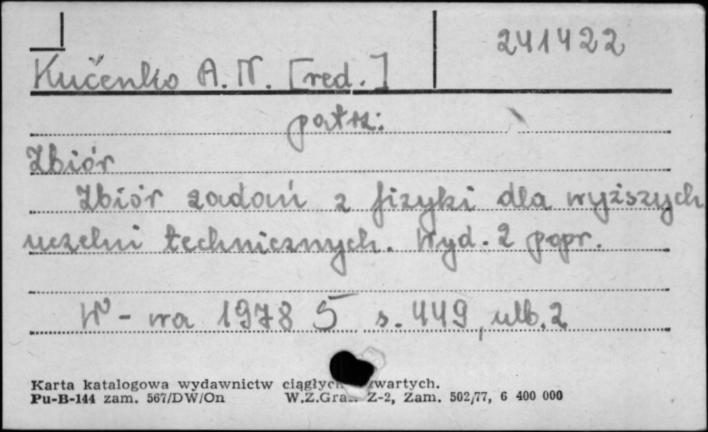 241422
Kučenko A. N. [red.]
patrz:
Zbiór
Zbiór zadań z fizyki dla wyższych
uczelni technicznych. Wyd. 2 popr.
W-wa 1978 5 s. 449, ulb. 2
Karta katalogowa wydawnictw zwartych.
Pu-B-144 zam. 567/DW/On W.Z.Graf. Z-2, Zam. 502/77, 6 400 000